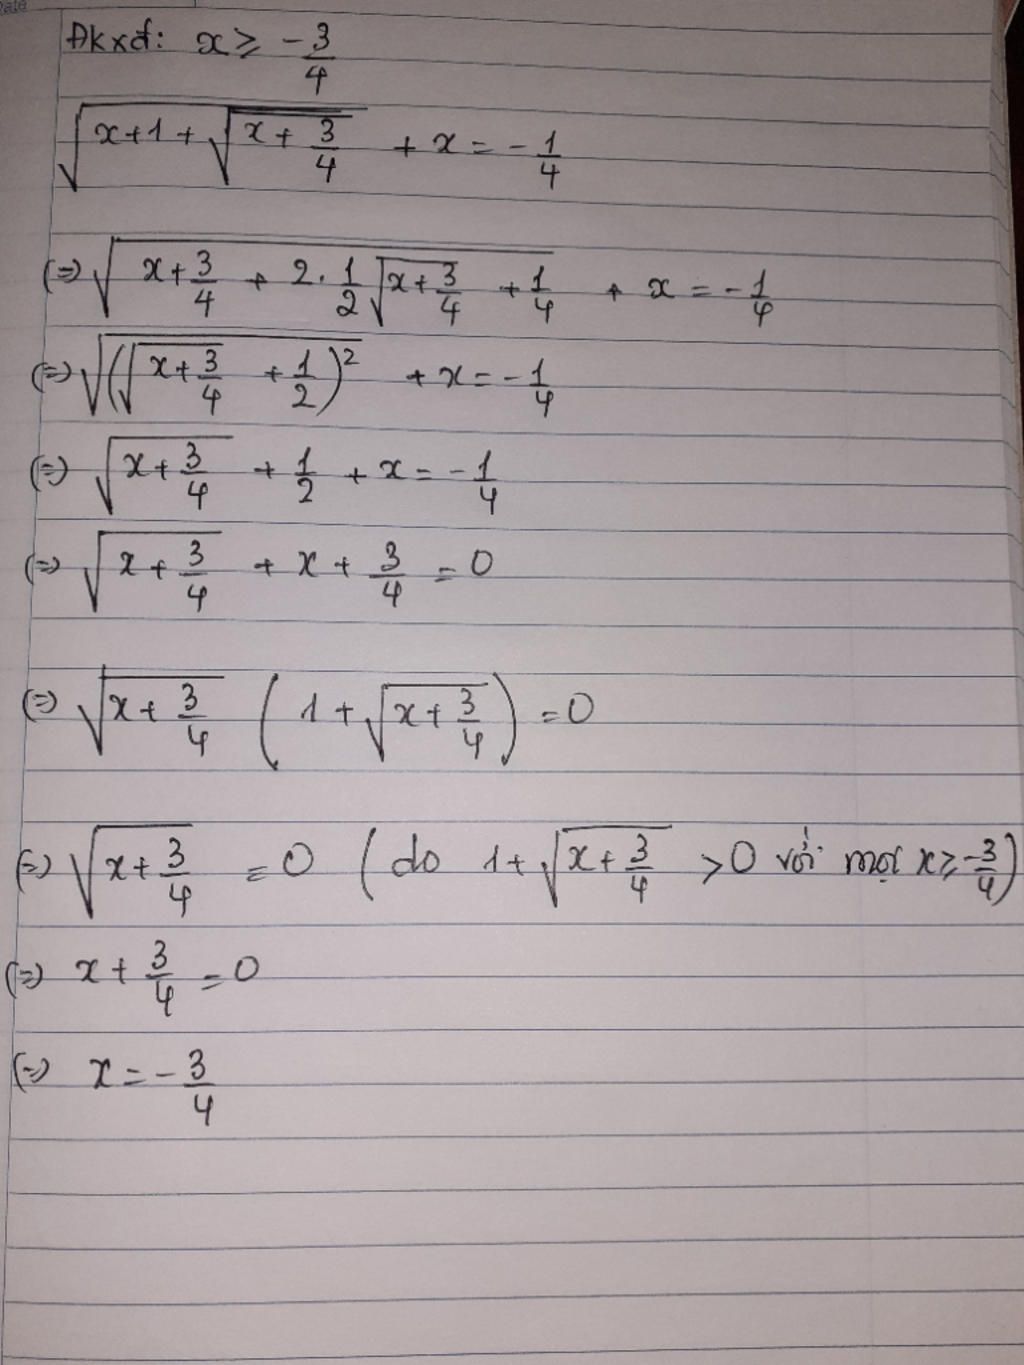 Đkxđ: x ≥ -3/4
√(x+1+√(x+3/4)) + x = -1/4
(=) √(x+3/4 + 2.1/2√(x+3/4) + 1/4) + x = -1/4
(=) √((√(x+3/4) + 1/2)²) + x = -1/4
(=) √(x+3/4) + 1/2 + x = -1/4
(=) √(x+3/4) + x + 3/4 = 0
(=) √(x+3/4) (1+√(x+3/4)) = 0
(=) √(x+3/4) = 0 (do 1+√(x+3/4) > 0 với mọi x ≥ -3/4)
(=) x + 3/4 = 0
(=) x = -3/4